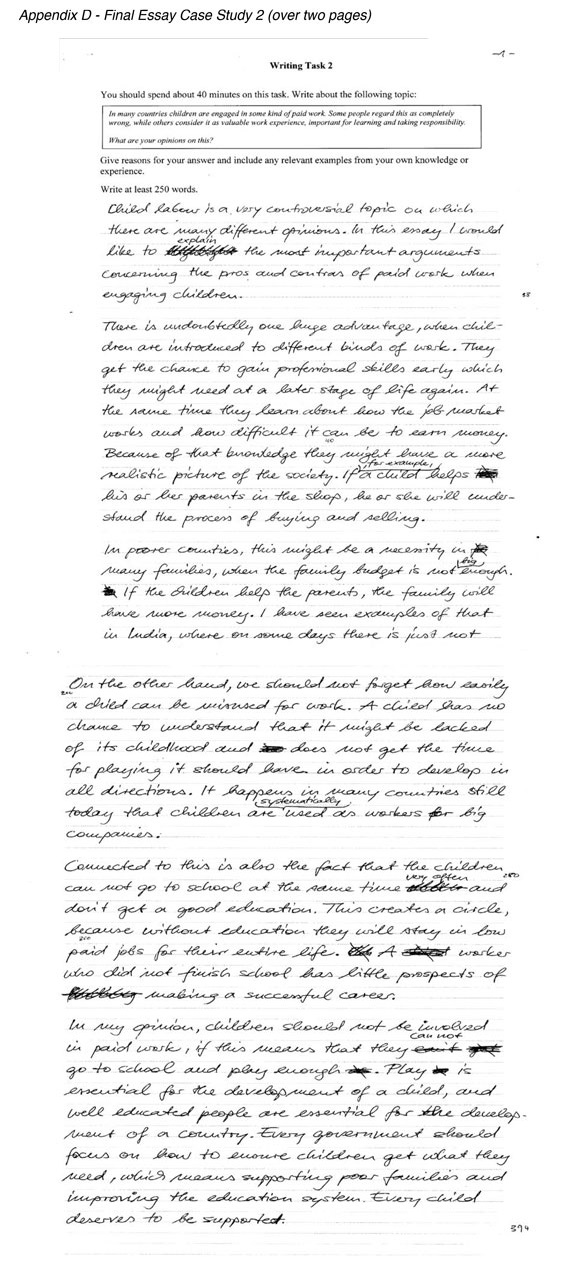 Appendix D - Final Essay Case Study 2 (over two pages)
-1-
Writing Task 2
You should spend about 40 minutes on this task. Write about the following topic:
In many countries children are engaged in some kind of paid work. Some people regard this as completely
wrong, while others consider it as valuable work experience, important for learning and taking responsibility.
What are your opinions on this?
Give reasons for your answer and include any relevant examples from your own knowledge or
experience.
Write at least 250 words.
Child labour is a very controversial topic on which
there are many different opinions. In this essay I would
explain
like to the most important arguments
concerning the pros and contras of paid work when
engaging children.
There is undoubtedly one huge advantage, when chil-
dren are introduced to different kinds of work. They
get the chance to gain professional skills early which
they might need at a later stage of life again. At
the same time they learn about how the job market
works and how difficult it can be to earn money.
Because of that knowledge they might have a more
for example,
realistic picture of the society. If a child helps
his or her parents in the shop, he or she will under-
stand the process of buying and selling.
In poorer counties, this might be a necessity in
big
many families, when the family budget is not enough.
If the children help the parents, the family will
have more money. I have seen examples of that
in India, where on some days there is just not
On the other hand, we should not forget how easily
a child can be misused for work. A child has no
chance to understand that it might be lacked
of its childhood and does not get the time
for playing it should have in order to develop in
all directions. It happens in many countries still
systematically
today that children are used as workers for big
companies.
Connected to this is also the fact that the children
very often
can not go to school at the same time and
don't get a good education. This creates a circle,
because without education they will stay in low
paid jobs for their entire life. A worker
who did not finish school has little prospects of
making a successful career.
In my opinion, children should not be involved
can not
in paid work, if this means that they
go to school and play enough. Play is
essential for the development of a child, and
well educated people are essential for the develop-
ment of a country. Every government should
focus on how to ensure children get what they
need, which means supporting poor families and
improving the education system. Every child
deserves to be supported.
394